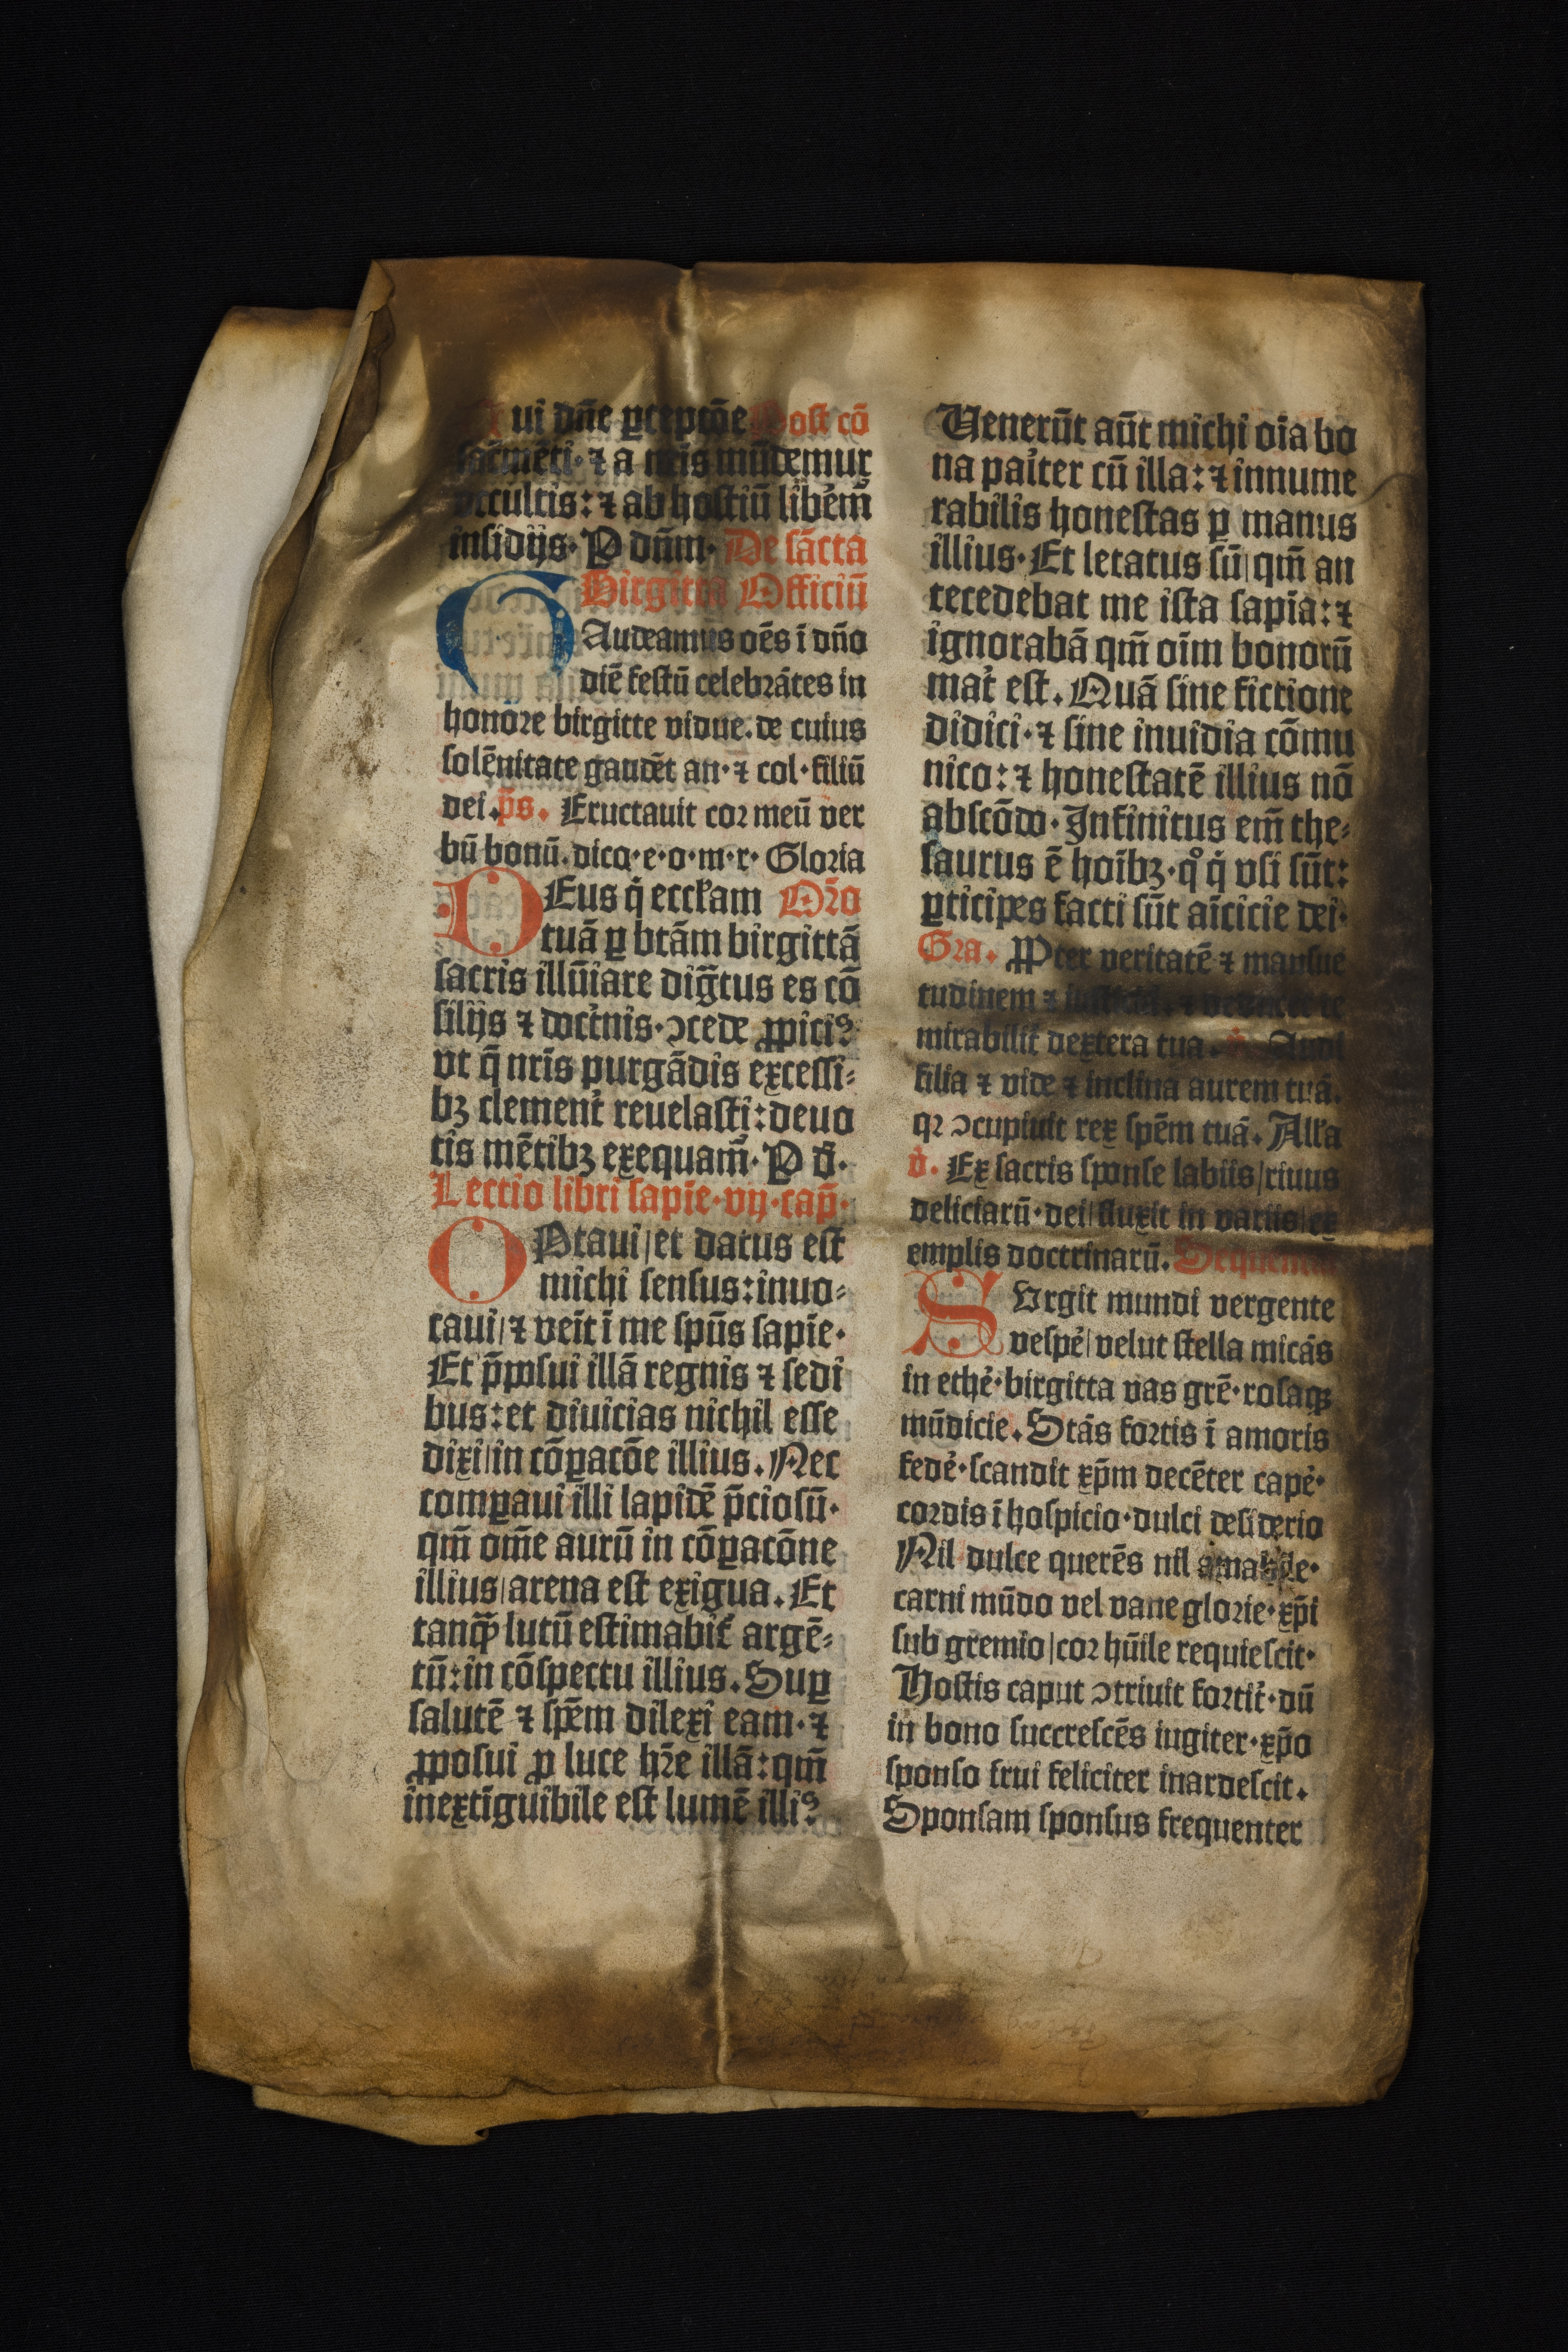 Tui dñe ꝑceptõe Post cõ
sac̃mẽti· ⁊ a nr̃is mũdemur
occultis: ⁊ ab hostiũ libem̃
insidijs· P dñm· De sãcta
Birgitta Officiũ
GAudeamus oẽs ĩ dño
diẽ festũ celebrãtes in
honore birgitte vidue. de cuius
solẽnitate gaudẽt an· ⁊ col· filiũ
dei. p̃s. Eructauit cor meũ ver
bũ bonũ. dico· e· o· m· r· Gloria
DEus q̇ eccłam Or̃o
tuã ꝑ btãm birgittã
sacris illũiare dig̃tus es cõ
silijs ⁊ doct̃nis· ɔcede ꝓpiciꝰ:
vt q̃ nr̃is purgãdis excessi-
bꝫ clement̃ reuelasti: deuo
tis mẽtibꝫ exequam̃· P d̃·
Lectio libri sapiẽ· vij· cap̃·
OPtaui/et datus est
michi sensus: inuo-
caui/⁊ veĩt ĩ me spũs sapiẽ·
Et p̃posui illã regnis ⁊ sedi
bus: et diuicias nichil esse
dixi/in cõꝑacõe illius. Nec
comꝑaui illi lapidẽ p̃ciosũ·
qm̃ om̃e aurũ in cõꝑacõne
illius/arena est exigua. Et
tanꝙ̃ lutũ estimabit̃ argẽ-
tũ: in cõspectu illius. Suꝑ
salutẽ ⁊ spẽm dilexi eam· ⁊
ꝓposui ꝓ luce hr̃e illã: qm̃
inextĩguibile est lumẽ illiꝰ:
Venerũt aũt michi oĩa bo
na pait̃er cũ illa: ⁊ innume
rabilis honestas ꝑ manus
illius· Et letatus sũ/qm̃ an
tecedebat me ista sapĩa: ⁊
ignorabã qm̃ oĩm bonorũ
mat̃ est. Quã sine fictione
didici· ⁊ sine inuidia cõmu
nico: ⁊ honestatẽ illius nõ
abscõdo· Infinitus em̃ the-
saurus ẽ hoĩbꝫ· qº q̇ vsi sũt:
ꝑticipes facti sũt aĩcicie dei·
Gra. PPter veritatẽ ⁊ mansue
tudinem ⁊
mirabilit̃ dextera tua. Audi
filia ⁊ vide ⁊ inclina aurem tuã.
qꝛ ɔcupiuit rex spẽm tuã. Alła
v̇. Ex sacris sponse labiis/riuus
deliciarũ· dei/fluxit in variis/ex
emplis doctrinarũ. Sequentia
SVrgit mundi vergente
vespẽ/velut stella micãs
in ethẽ· birgitta vas grẽ· rosaqꝫ
mũdicie. Stãs fortis ĩ amoris
fedẽ· scandit xp̃m decẽter capẽ·
cordis ĩ hospicio· dulci desiderio
Nil dulce querẽs nil amabile·
carni mũdo vel vane glorie· xp̃i
sub gremio/cor hũile requiescit·
Hostis caput ɔtriuit fortit̃· dũ
in bono succrescẽs iugiter· xp̃o
sponso frui feliciter inardescit.
Sponsam sponsus frequenter